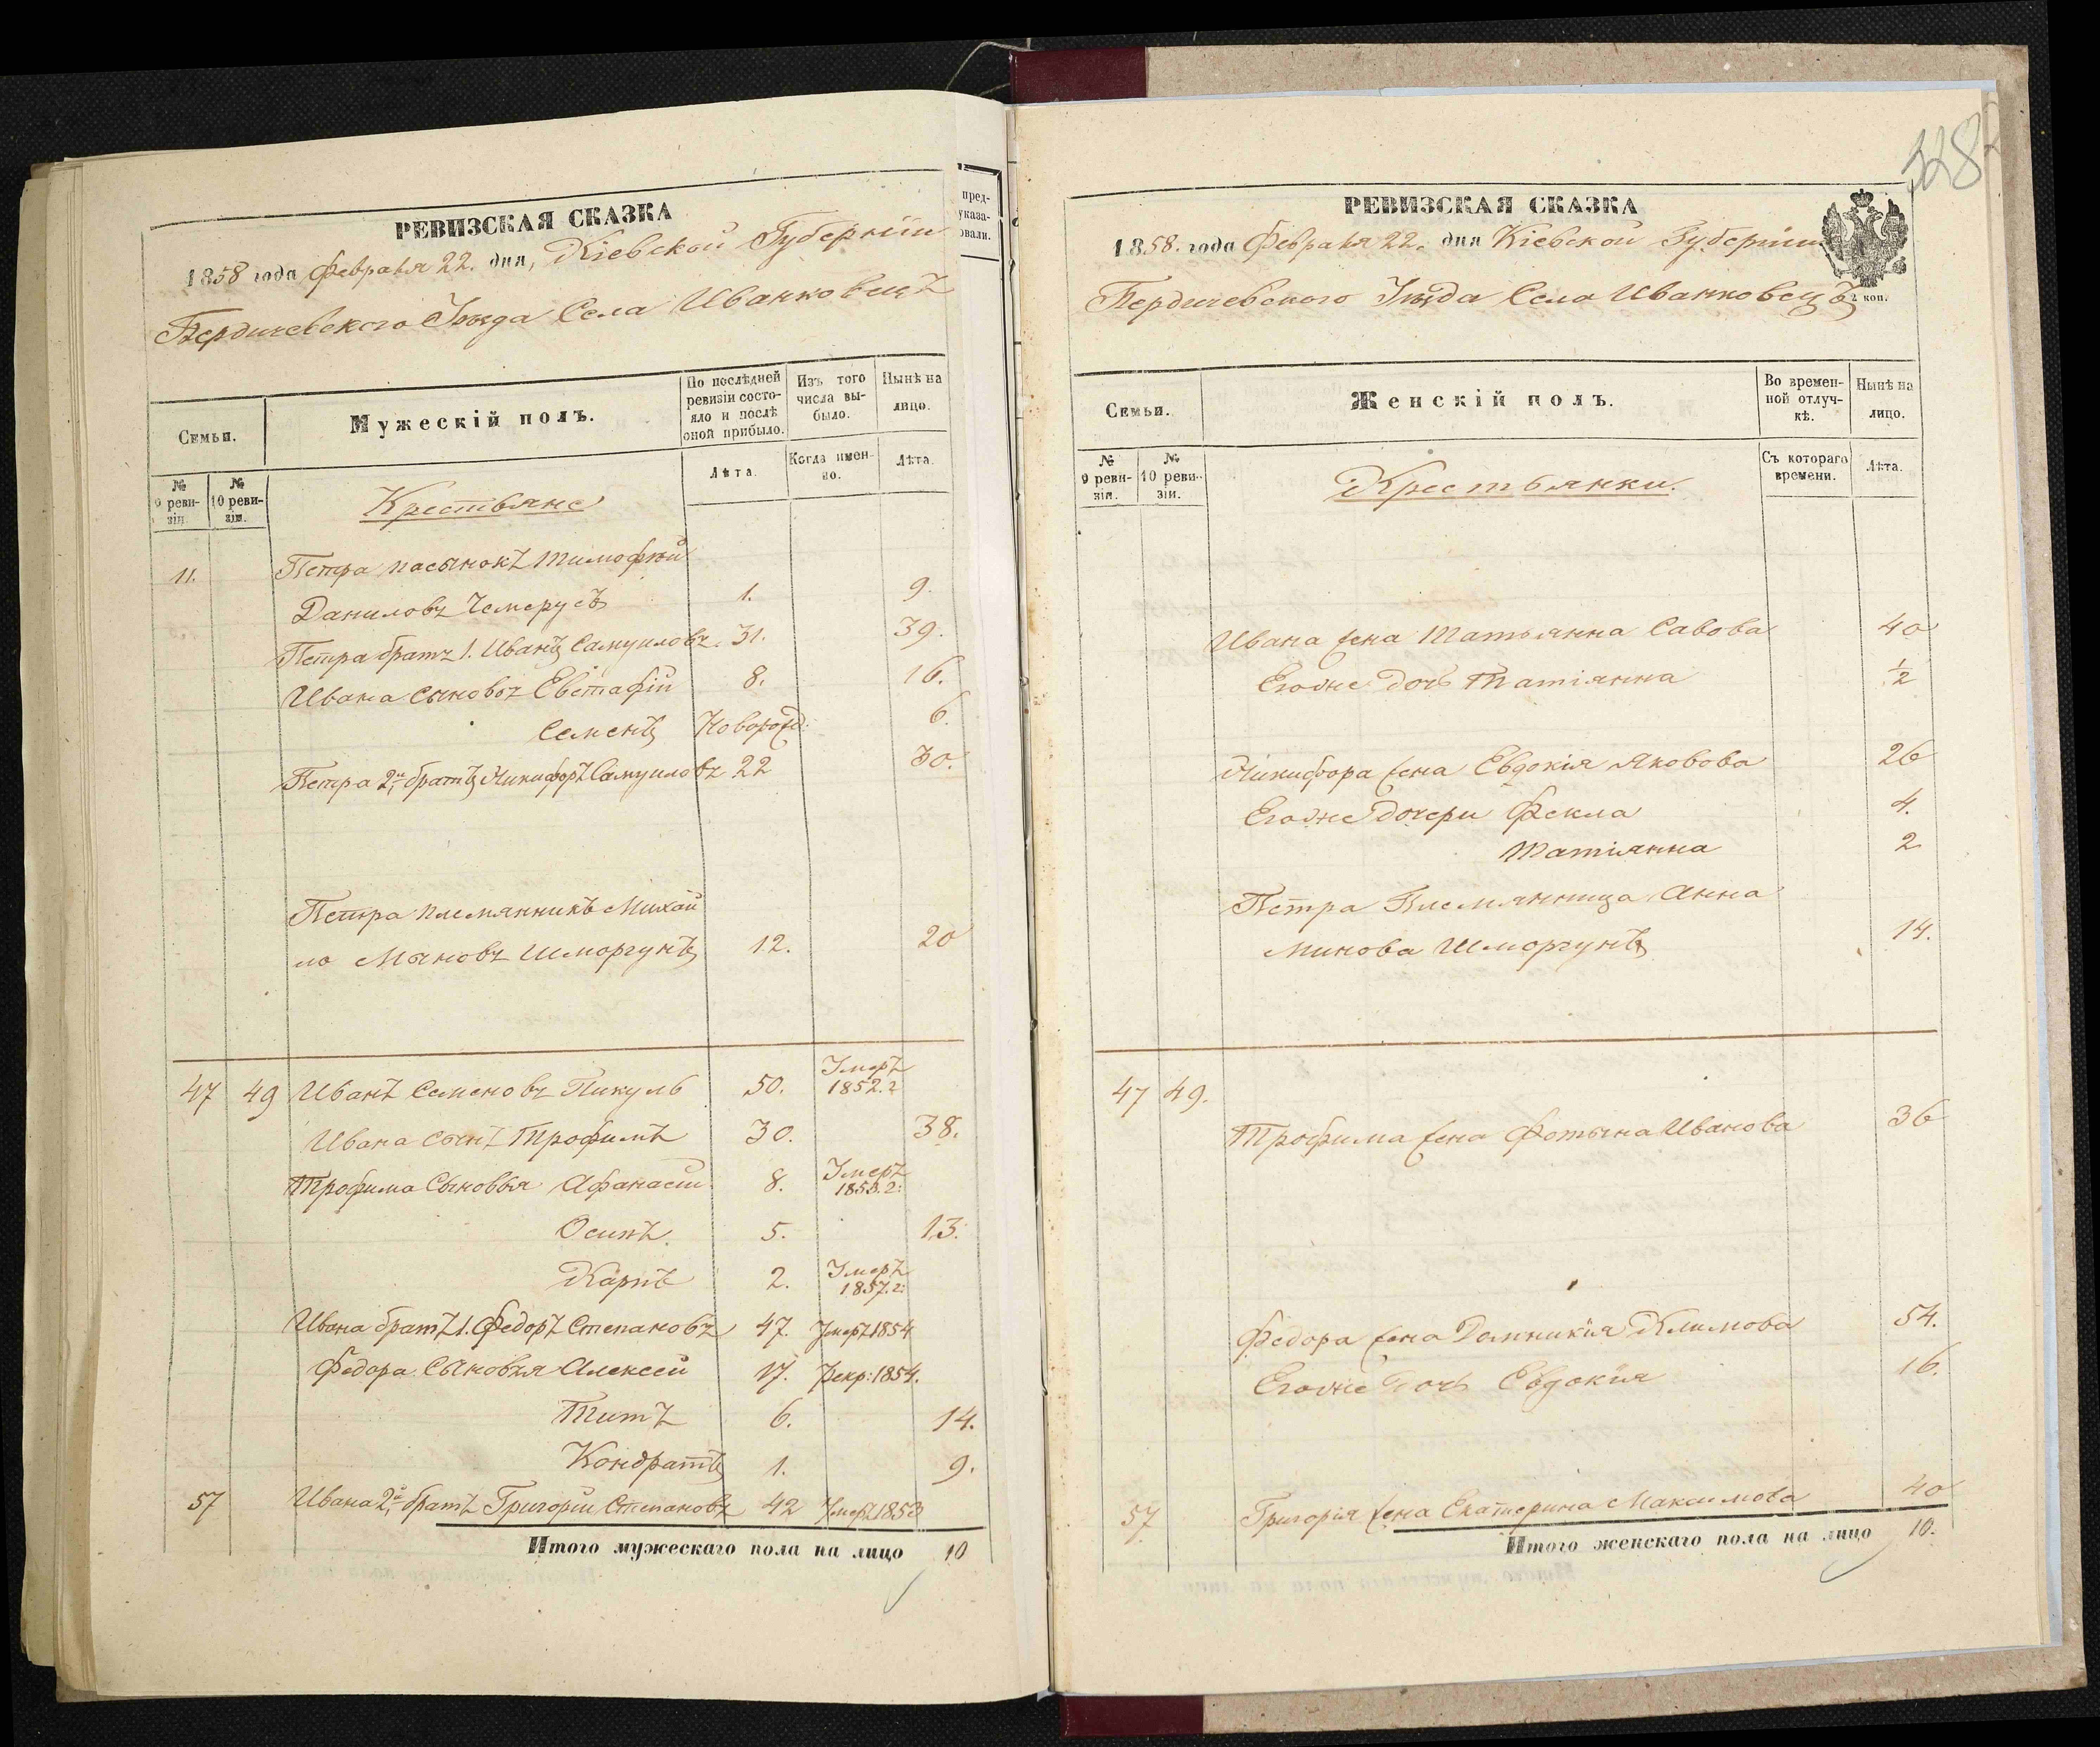 РЕВИЗСКАЯ СКАЗКА
1858 года Февраля 22. дня, Кіевской Губерніи
Бердичевскаго Уѣзда Села Иванковецъ
Семьи.
Мужескій полъ.
По послѣдней ревизіи состояло и послѣ оной прибыло.
Изъ того числа выбыло.
Нынѣ на лицо.
№ 9 ревизіи.
№ 10 ревизіи.
Лѣта.
Когда именно.
Лѣта.
Крестьяне
11. Петра пасынокъ Тимофѣй
Даниловъ Чемерусъ 1. 9.
Петра братъ 1. Иванъ Самуиловъ. 31. 39.
Ивана сыновья Евстафій 8. 16.
Семенъ Новорожд: 6.
Петра 2й братъ Никифоръ Самуиловъ 22 30.
Петра племянникъ Михай
ло Миновъ Шморгунъ 12. 20
47 49 Иванъ Семеновъ Пикуль 50. Умеръ 1852. г
Ивана сынъ Трофимъ 30. 38.
Трофима Сыновья Афанасій 8. Умеръ 1853. г:
Осипъ. 5. 13.
Карпъ 2. Умеръ 1857. г:
Ивана братъ 1. Федоръ Степановъ 47. Умеръ 1854
Федора Сыновья Алексей 17. Рекр: 1854.
Титъ 6. 14.
Кондратъ 1. 9.
57 Ивана 2й братъ Григорій Степановъ 42 Умеръ 1853
Итого мужескаго пола на лицо 10
пред-
указа-
овали.
328
РЕВИЗСКАЯ СКАЗКА
1858. года Февраля 22. дня Кіевской Губерніи
Бердичевского Уѣзда Села Иванковецъ
2 коп.
Семьи.
Женскій полъ.
Во временной отлучкѣ.
Нынѣ на лицо.
№ 9 ревизіи.
№ 10 ревизіи.
Съ котораго времени.
Лѣта.
Крестьянки.
Ивана жена Татьянна Савова 40
Егоже дочь Татіянна ½
Никифора жена Евдокія Яковова 26
Егоже дочери Фекла 4.
Татіянна 2
Петра Племянница Анна
Минова Шморгунъ 14.
47 49.
Трофима жена Фотына Иванова 36
Федора жена Домникія Климова 54.
Егоже дочь Евдокія 16.
57 Григорія жена Екатерина Максимова 40
Итого женскаго пола на лицо 10.